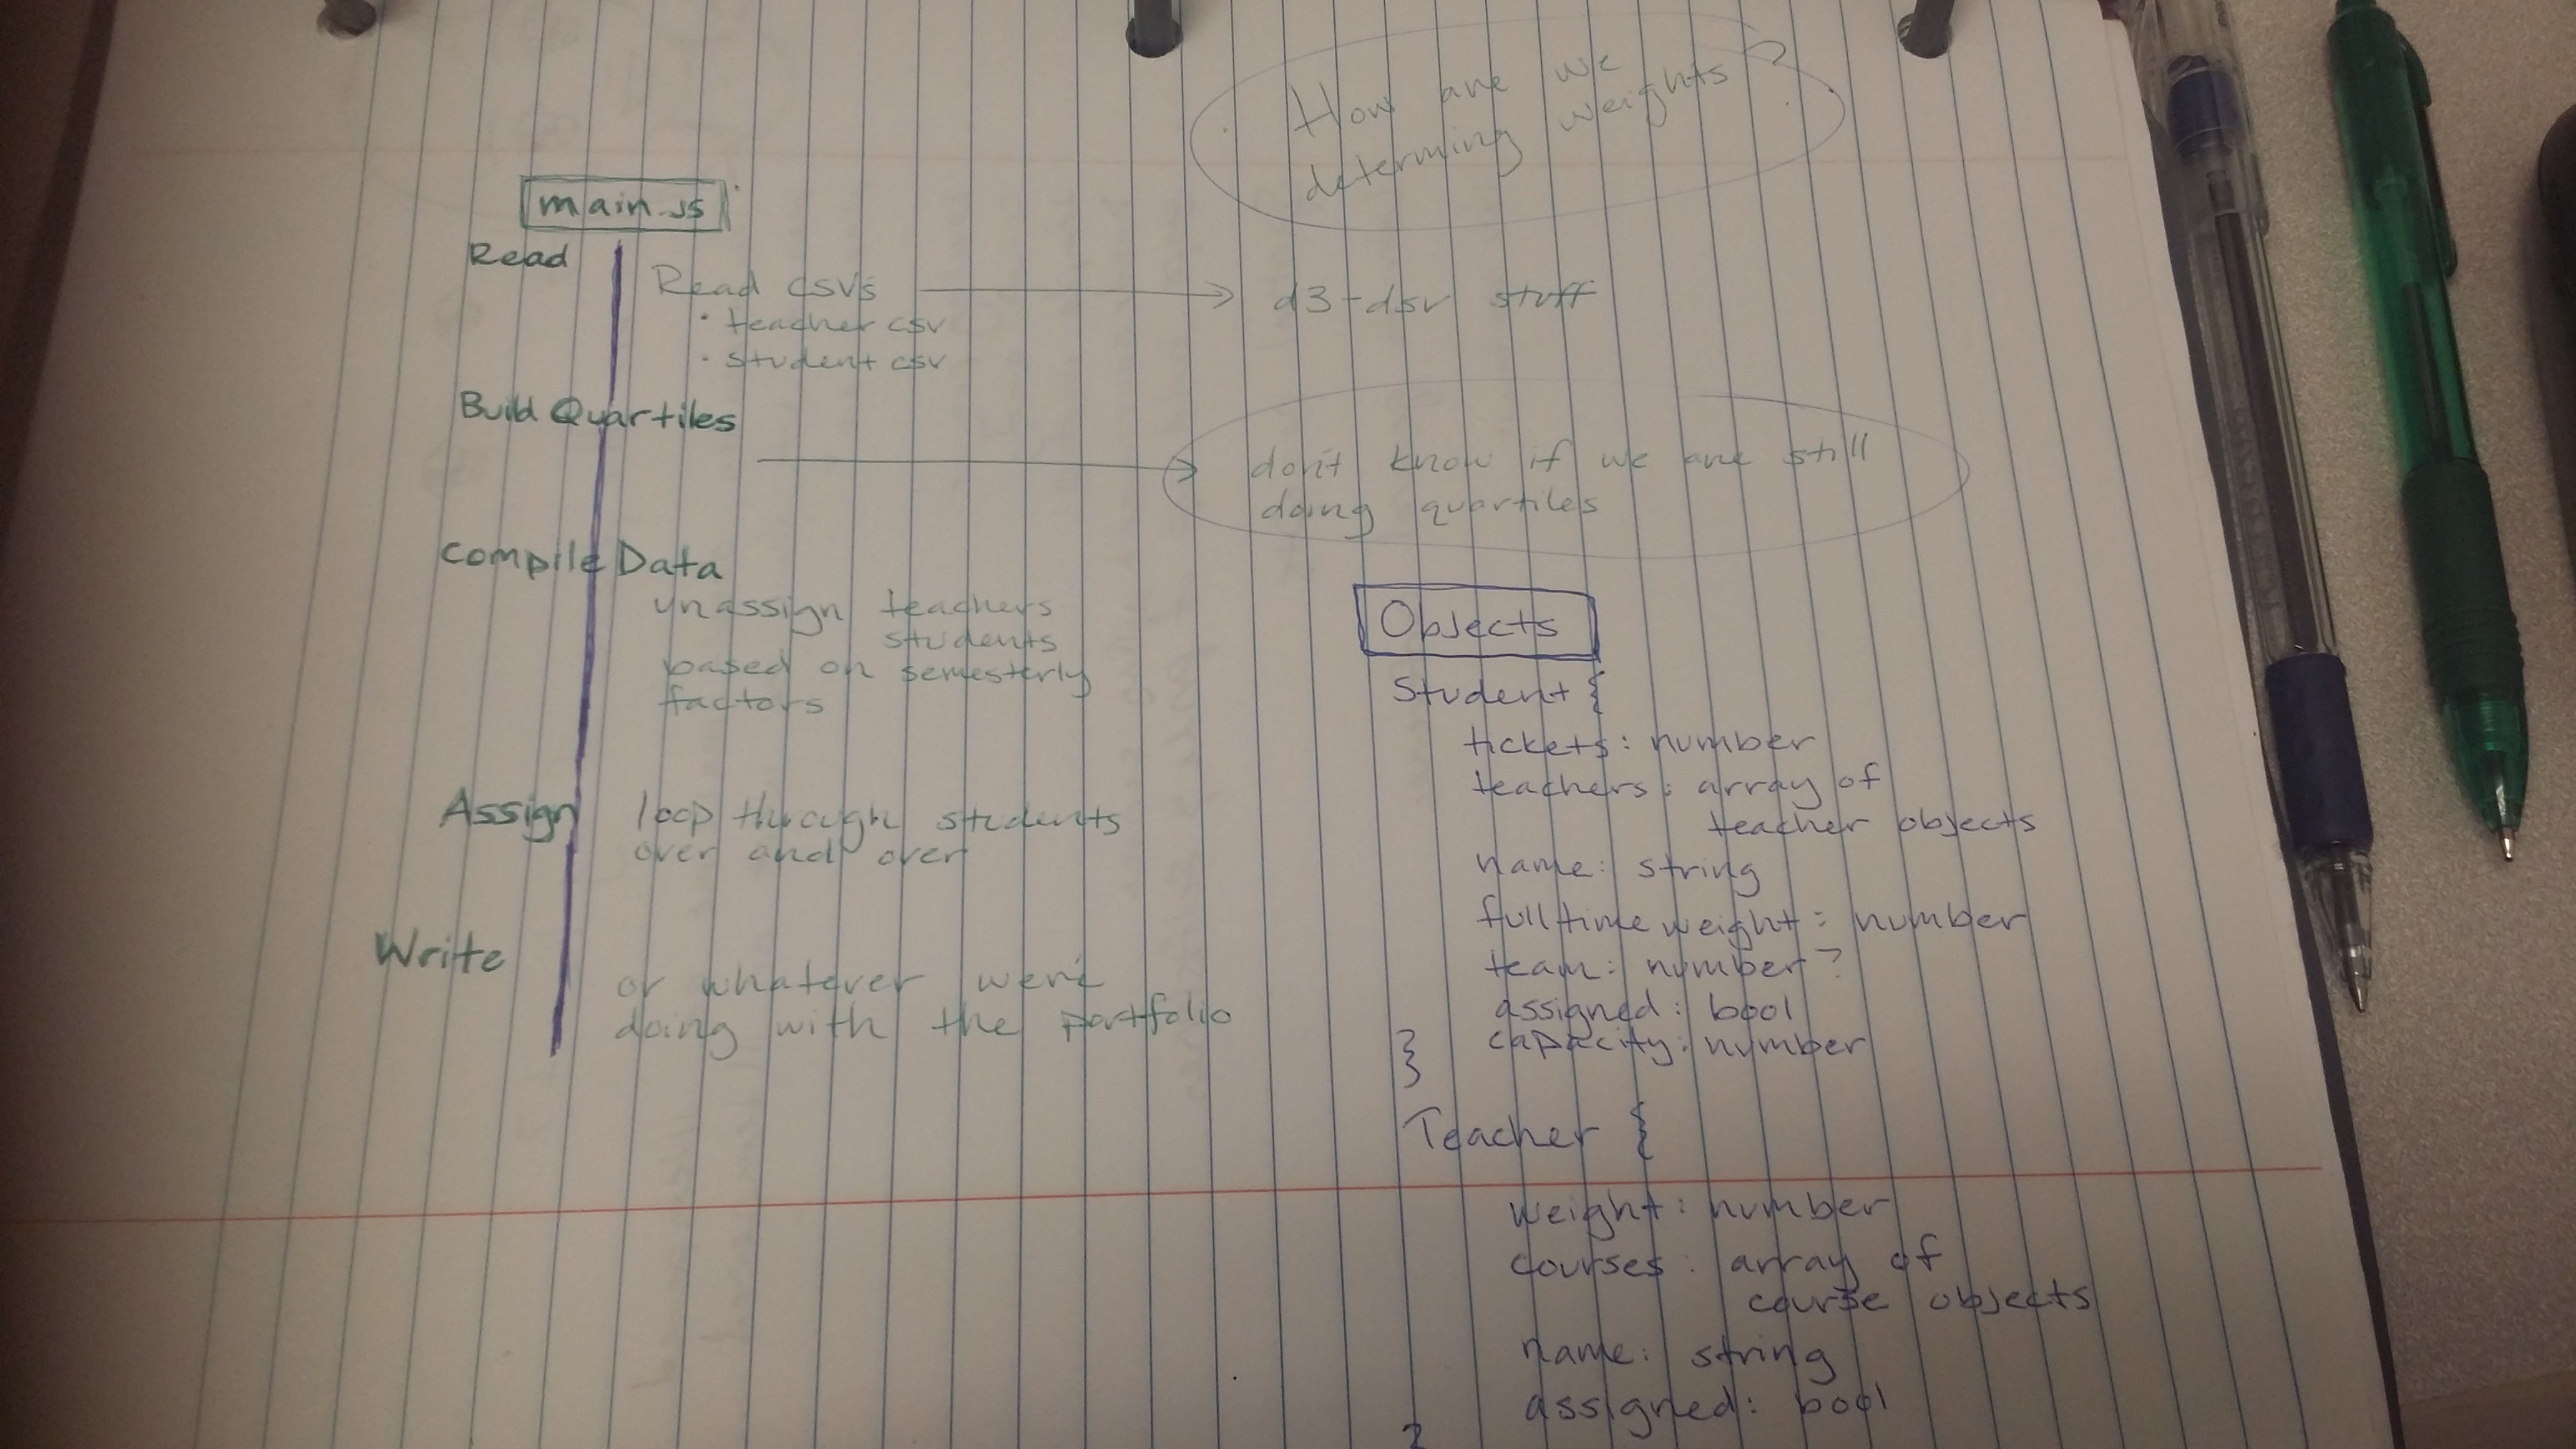 How are we
determing weights ?
main.js
Read
Read csvs
· teacher csv
· student csv
d3-dsv stuff
Build Quartiles
don't know if we are still
doing quartiles
Compile Data
unassign teachers
students
based on semesterly
factors
Assign
loop through students
over and over
Write
or whatever we're
doing with the portfolio
Objects
Student {
tickets: number
teachers: array of
teacher objects
name: string
fulltime weight: number
team: number?
assigned: bool
capacity: number
}
Teacher {
weight: number
courses: array of
course objects
name: string
assigned: bool
}